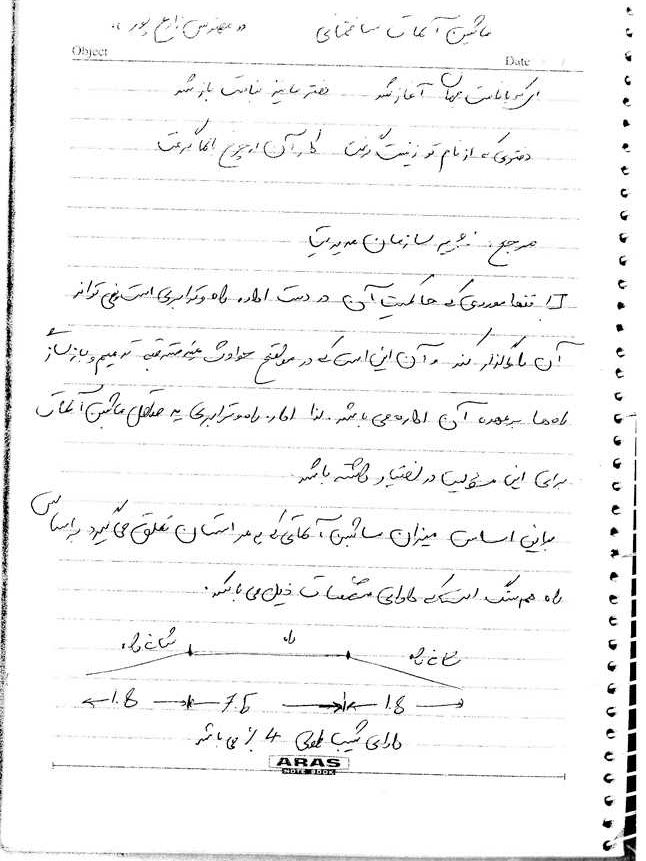 ماشین آلات ساختمانی «مهندس زارع پور»
Object
Date
ای که با نامت جهان آغاز شد دفتر ما نیز به نامت باز شد
دفتری که از نام تو زینت گرفت کار آن از چرخ بالا گرفت
مرجع: نشریه سازمان مدیریت
1] تنها موردی که حاکمیت آن در دست اداره راه و ترابری است نمی تواند
آن را واگذار کند و آن این است که در مواقع حوادث غیر مترقبه ترمیم و بازسازی
راه ها بر عهده آن اداره می باشد. لذا اداره راه و ترابری به حداقل ماشین آلات
برای این مسئولیت در اختیار داشته باشد.
بر این اساس میزان ماشین آلاتی که به هر استان تعلق می گیرد بر اساس
راه هم سنگ است که دارای مشخصات ذیل می باشد.
شانه راه راه شانه راه
1.8 7.5 1.8
دارای شیب طولی 4% می باشد
ARAS
NOTE BOOK